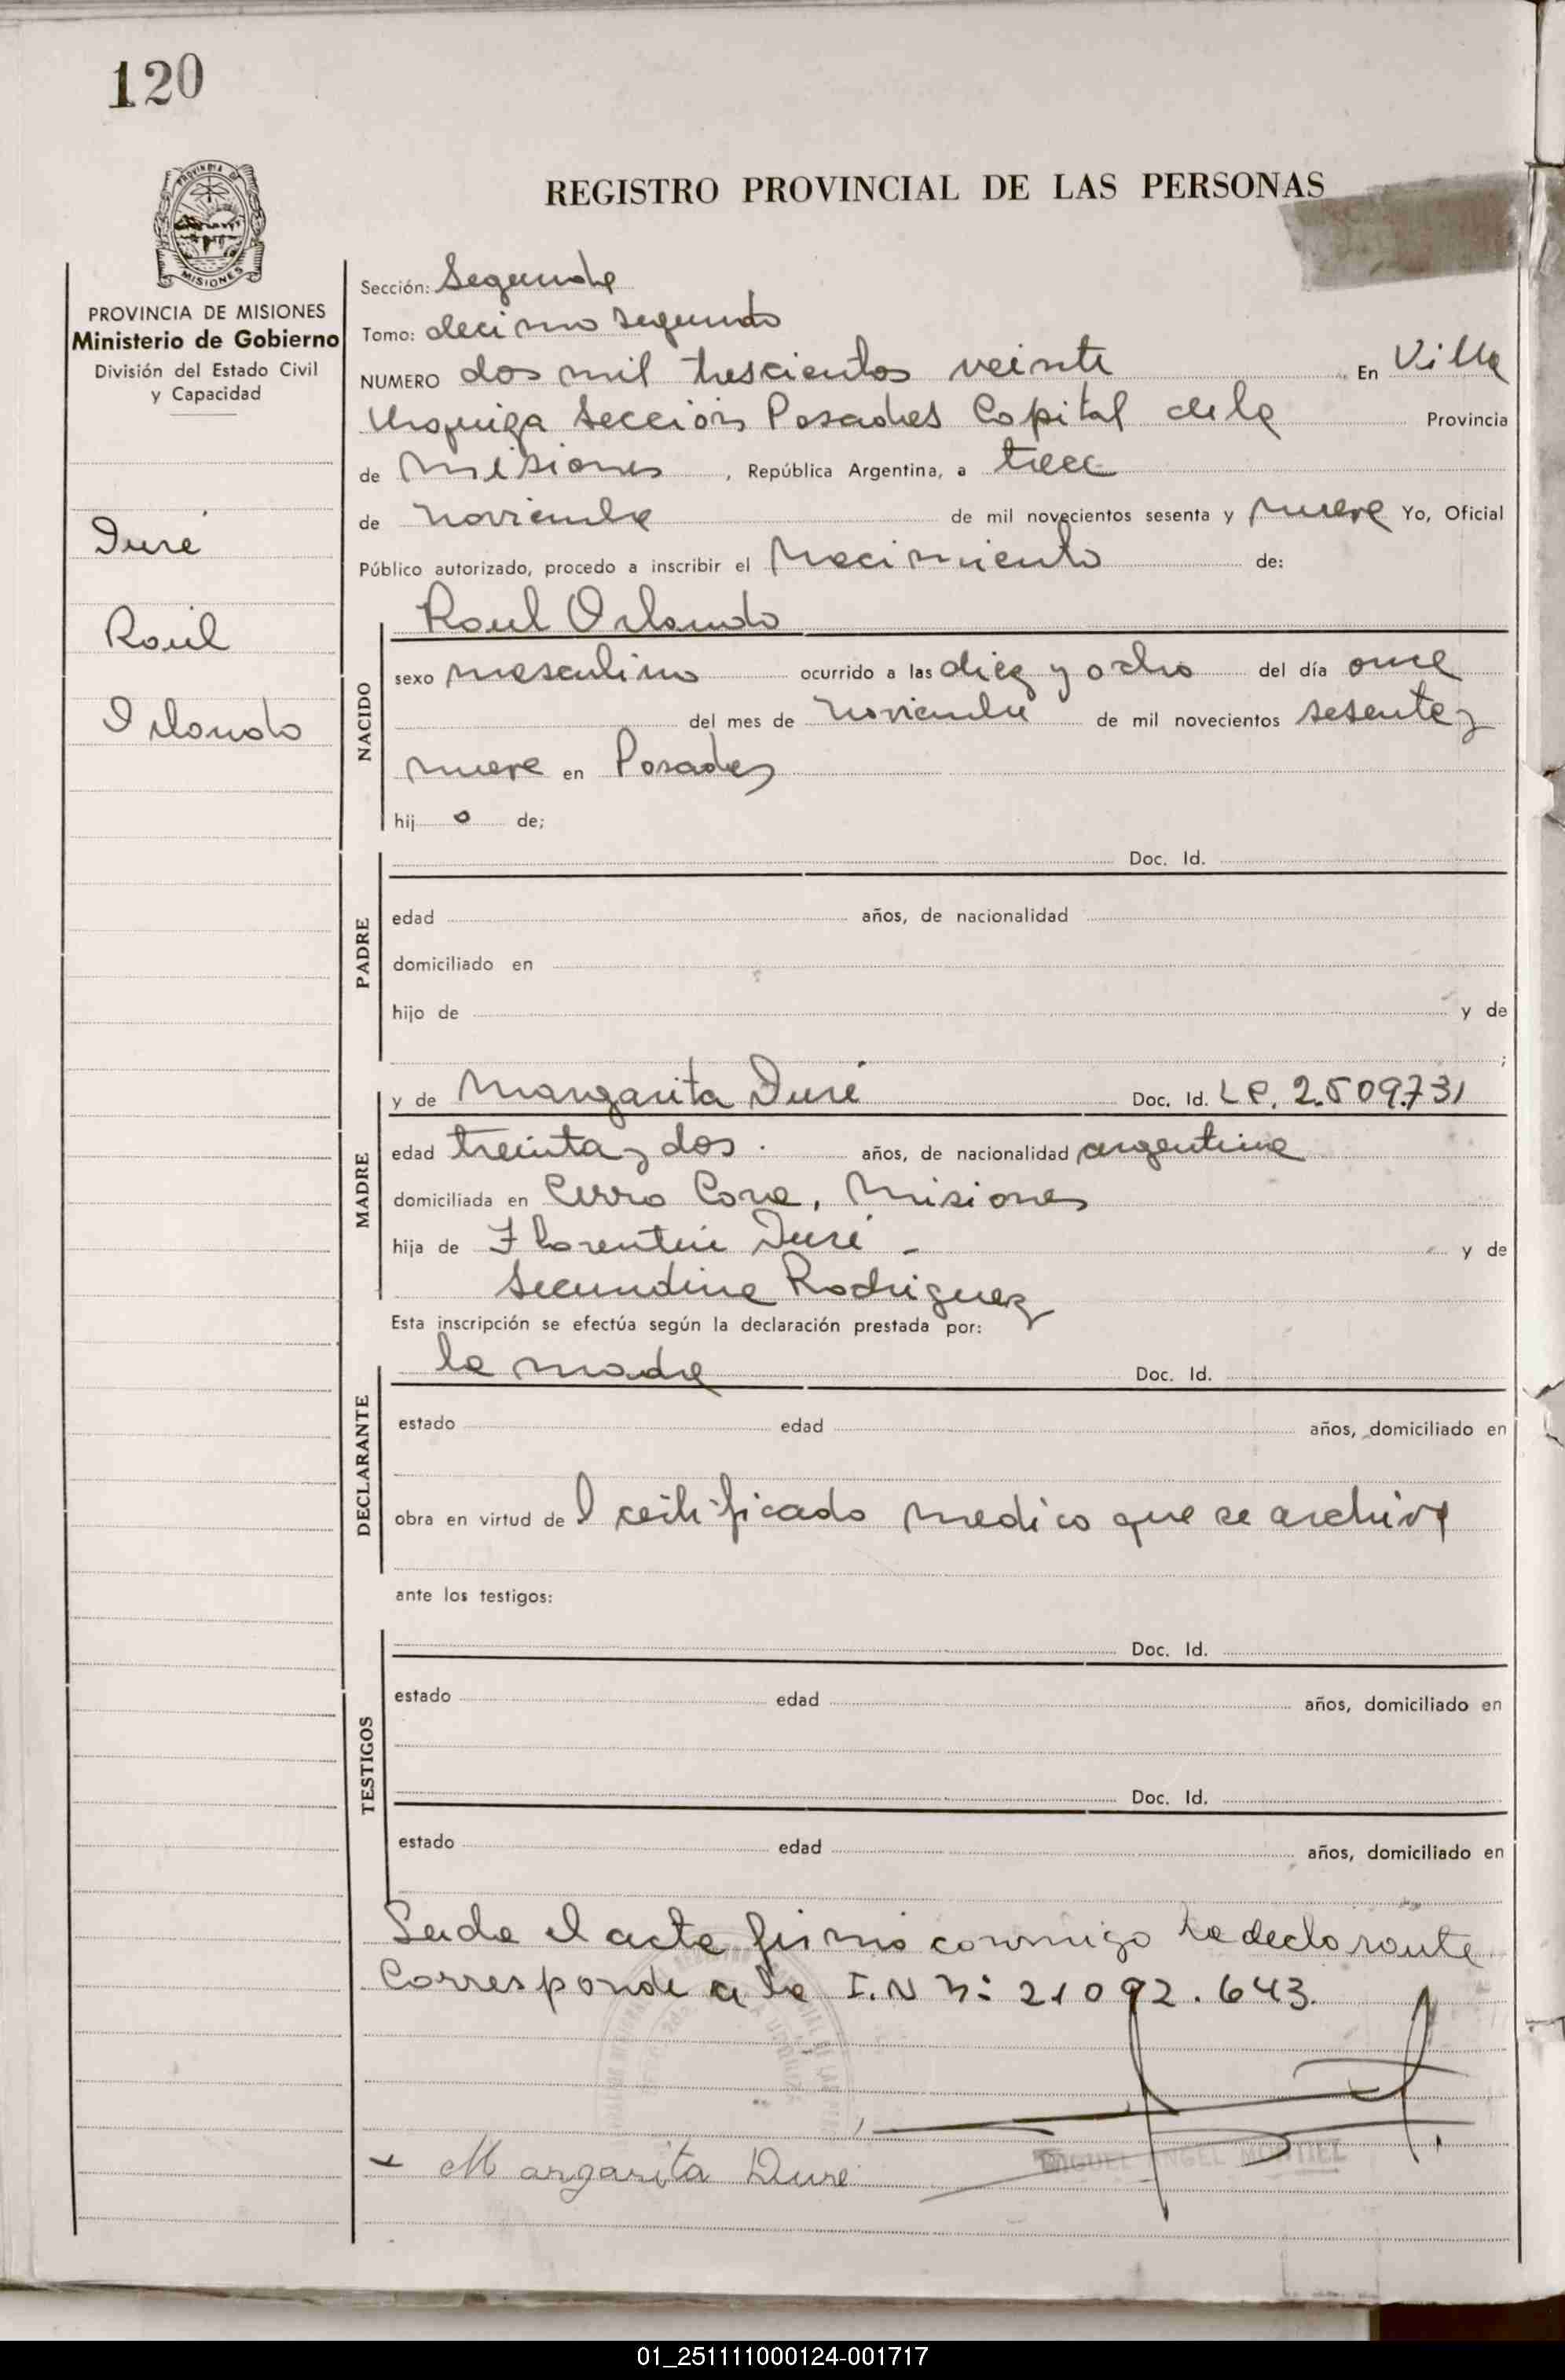 120
REGISTRO PROVINCIAL DE LAS PERSONAS
PROVINCIA DE MISIONES
Ministerio de Gobierno
División del Estado Civil
y Capacidad
Duré
Raúl
Orlando
Sección: Segunda
Tomo: decimo segundo
NUMERO dos mil trescientos veinte En Villa
Urquiza Sección Posadas Capital de la Provincia
de Misiones, República Argentina, a trece
de noviembre de mil novecientos sesenta y nueve Yo, Oficial
Público autorizado, procedo a inscribir el Nacimiento de:
Raul Orlando
NACIDO
sexo masculino ocurrido a las diez y ocho del día once
del mes de noviembre de mil novecientos sesenta y
nueve en Posadas
hij o de;
PADRE
Doc. Id.
edad años, de nacionalidad
domiciliado en
hijo de y de
;
MADRE
y de Margarita Duré Doc. Id. L.C. 2.509.731
edad treinta y dos. años, de nacionalidad argentina
domiciliada en Cerro Cora, Misiones
hija de Florentin Duré - y de
Secundina Rodriguez
Esta inscripción se efectúa según la declaración prestada por:
DECLARANTE
la madre Doc. Id.
estado edad años, domiciliado en
obra en virtud de l certificado medico que se archiva
ante los testigos:
TESTIGOS
Doc. Id.
estado edad años, domiciliado en
Doc. Id.
estado edad años, domiciliado en
Leida el acta firmó conmigo la declarante
Corresponde a la I.N n: 21092.643.
Margarita Dure
MIGUEL ANGEL MONTIEL
01_251111000124-001717